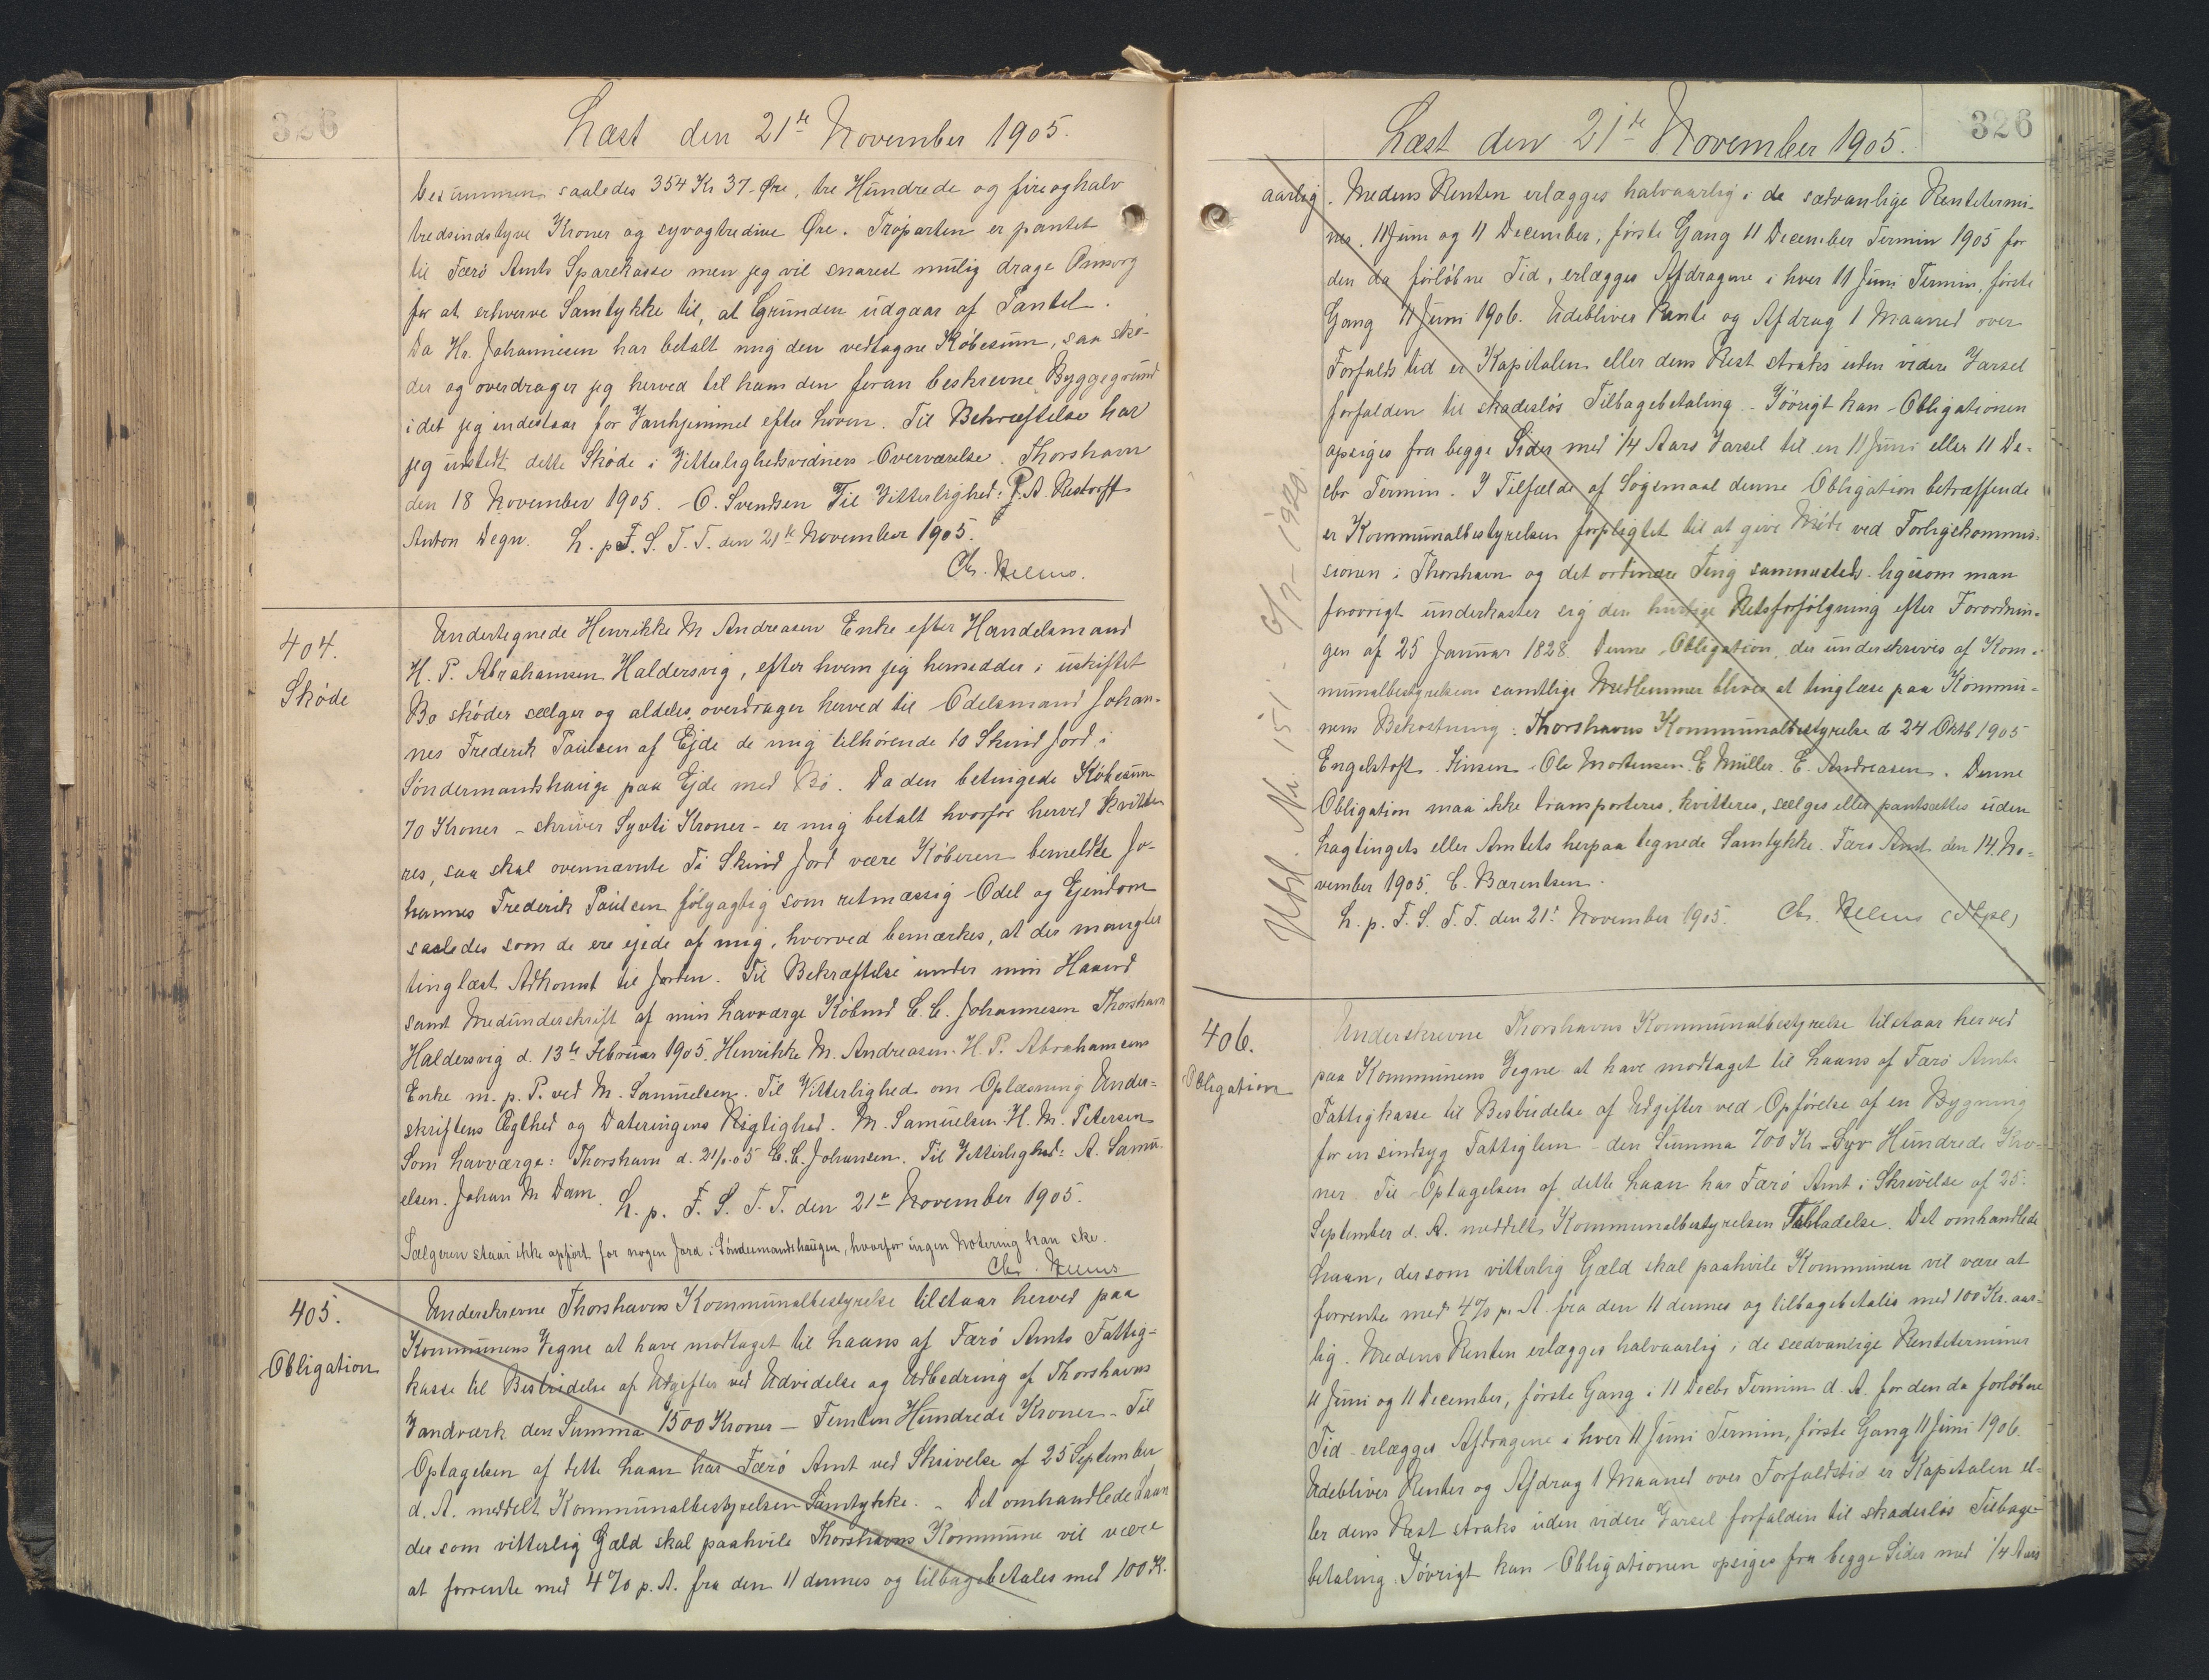 326
Læst den 21de November 1905.
besummen saaledes 354 Kr 37 Øre, tre Hundrede og fireoghalv
tredsindstyve Kroner og syvogtredive Øre. Troparten er pantet
til Færø Amts Sparekasse men jeg vil snarest mulig drage Omsorg
for at erhverve Samtykke til, at Grunden udgaar af Pantet.
Da Hr. Johannesen har betalt mig den vedtagne Købesum, saa skø-
der og overdrager jeg herved til ham den foran beskrevne Byggegrund
idet jeg indestaar for Vanhjemmel efter Loven. Til Bekræftelse har
jeg udstedt dette Skøde i Vitterlighedsvidners Overværelse. Thorshavn
den 18 November 1905. O. Svendsen Til Vitterlighed: J. A. Restorff
Anton Degn. L. p. F. S. T. T. den 21de November 1905.
Chr. Nelms.
404.
Skøde
Undertegnede Henrikke M Andreasen Enke efter Handelsmand
H. P. Abrahamsen Haldersvig, efter hvem jeg hensidder i uskiftet
Bo skøder sælger og aldeles overdrager herved til Odelsmand Johan-
nes Frederik Paulsen af Ejde de mig tilhørende 10 Skind Jord i
Søndermandshauge paa Ejde med Bø. Da den betingede Købesum
70 Kroner - skriver Syvti Kroner - er mig betalt hvorfor herved kvitte-
res, saa skal ovennævnte Ti Skind Jord være Køberen bemeldte Jo-
hannes Frederik Paulsen følgagtig som retmæssig Odel og Ejendom
saaledes som de ere ejede af mig, hvorved bemærkes, at der mangler
tinglæst Adkomst til Jorden. Til Bekræftelse under min Haand
samt Medunderskrift af min Lavværge Købmd C. C. Johannesen Thorshavn
Haldersvig d. 13de Februar 1905. Henrikke M. Andreasen. H. P. Abrahamsens
Enke m. p. P. ved M. Samuelsen. Til Vitterlighed om Oplæsning Under-
skriftens Ægthed og Dateringens Rigtighed. M. Samuelsen. H. M. Petersen
Som Lavværge: Thorshavn d. 21/ 05 C. C. Johansen. Til Vitterlighed: A. Samu-
elsen. Johan M Dam. L. p. F. S. T. T. den 21de November 1905.
Sælgeren staar ikke opført for nogen Jord i Søndermandshaugen, hvorfor ingen Notering kan ske.
Chr. Nelms
405.
Obligation
Underskrevne Thorshavns Kommunalbestyrelse tilstaar herved paa
Kommunens Vegne at have modtaget til Laans af Færø Amts Fattig-
kasse til Bestridelse af Udgifter ved Udvidelse og Udbedring af Thorshavns
Vandværk den Summa 1500 Kroner - Femten Hundrede Kroner. Til
Optagelsen af dette Laan har Færø Amt ved Skrivelse af 25 September
d. A. meddelt Kommunalbestyrelsen Samtykke. - Det omhandlede Laan
der som vitterlig Gæld skal paahvile Thorshavns Kommune vil være
at forrente med 4% p. A. fra den 11 dennes og tilbagebetales med 100 K.
326
Læst den 21de November 1905.
aarlig. Medens Renten erlægges halvaarlig i de sædvanlige Rentetermi-
ner, 11 Juni og 11 December, første Gang 11 December Termin 1905 for
den da forløbne Tid, erlægges Afdragene i hver 11 Juni Termin, første
Gang 11 Juni 1906. Udebliver Rente og Afdrag 1 Maaned over
Forfaldstid er Kapitalen eller dens Rest straks uden videre Varsel
forfalden til skadesløs Tilbagebetaling. Iøvrigt kan Obligationen
opsiges fra begge Sider med 1/4 Aars Varsel til en 11 Juni eller 11 De-
cbr Termin. I Tilfælde af Søgsmaal denne Obligation betræffende
er Kommunalbestyrelsen forpligtet til at give Møde ved Forligskommis-
sionen i Thorshavn og det ordinære Ting sammesteds ligesom man
forøvrigt underkaster sig den hurtige Retsforfølgning efter Forordnin-
gen af 25 Januar 1828. Denne Obligation, der underskrives af Kom-
munalbestyrelsens samtlige Medlemmer bliver at tinglæse paa Kommu-
nens Bekostning. Thorshavns Kommunalbestyrelse d 24 Oktb 1905
Engelstoft. Jensen. Ole Mortensen. E Müller. E. Andreasen. Denne
Obligation maa ikke transporteres, kvitteres, sælges eller pantsættes uden
Lagtingets eller Amtets herpaa tegnede Samtykke. Færø Amt den 14. No-
vember 1905. C. Bærentsen.
L. p. F. S. T. T. den 21de November 1905. Chr. Nelms
Udsl. No. 151. 1920.
406.
Obligation
Underskrevne Thorshavns Kommunalbestyrelse tilstaar herved
paa Kommunens Vegne at have modtaget til Laans af Færø Amts
Fattigkasse til Bestridelse af Udgifter ved Opførelse af en Bygning
for en sindsyg Fattiglem - den Summa 700 Kr - Syv Hundrede Kro-
ner. Til Optagelsen af dette Laan har Færø Amt i Skrivelse af 25.
September d. A. meddelt Kommunalbestyrelsen Tilladelse. Det omhandlede
Laan, der som vitterlig Gæld skal paahvile Kommunen vil være at
forrente med 4% p. A. fra den 11 dennes og tilbagebetales med 100 Kr. aar-
lig. Medens Renten erlægges halvaarlig i de sædvanlige Renteterminer
11 Juni og 11 December, første Gang i 11 Decbr Termin d. A. for den da forløbne
Tid - erlægges Afdragene i hver 11 Juni Termin, første Gang 11 Juni 1906.
Udebliver Renter og Afdrag 1 Maaned over Forfaldstid er Kapitalen el-
ler dens Rest straks uden videre Varsel forfalden til skadesløs Tilbage-
betaling. Iøvrigt kan Obligationen opsiges fra begge Sider med 1/4 Aars